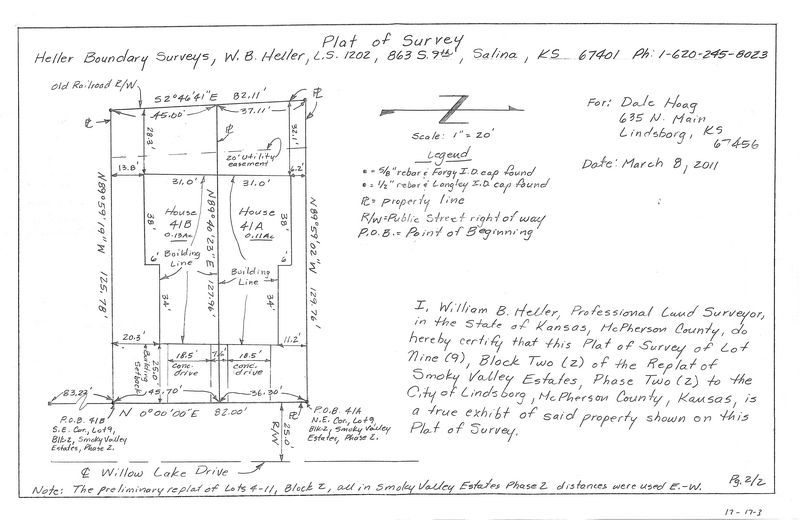 Plat of Survey
Heller Boundary Surveys, W. B. Heller, L.S. 1202, 863 S. 9th, Salina, KS 67401 Ph: 1-620-245-8023
Old Railroad R/W
S2°46'41"E 82.11'
45.00' 37.11'
For: Dale Hoag
635 N. Main
Lindsborg, KS
67456
Date: March 8, 2011
Scale: 1" = 20'
Legend
= 5/8" rebar & Forgy I.D. cap found
= 1/2" rebar & Longley I.D. cap found
℄ = property line
R/W = Public Street right of way
P.O.B. = Point of Beginning
28.3'
32.1'
20' Utility
easement
13.8' 6.2'
31.0' 31.0'
N89°59'19"W 125.78'
N89°40'23"E 127.96'
N89°59'02"W 129.76'
House
41B
0.13Ac
House
41A
0.11Ac
38' 38'
Building
Line
Building
Line
6' 6'
34' 34'
20.3' 11.2'
18.5' 7.6 18.5'
conc.
drive
conc.
drive
Building
Setback
25.0'
83.23' 45.70' 36.30'
N 0°00'00"E 82.00'
P.O.B. 41B
S.E. Cor., Lot 9,
Blk. 2, Smoky Valley
Estates, Phase 2.
P.O.B. 41A
N.E. Cor., Lot 9
Blk 2, Smoky Valley
Estates, Phase 2.
R/W
25.0'
℄ Willow Lake Drive
I, William B. Heller, Professional Land Surveyor,
in the State of Kansas, McPherson County, do
hereby certify that this Plat of Survey of Lot
Nine (9), Block Two (2) of the Replat of
Smoky Valley Estates, Phase Two (2) to the
City of Lindsborg, McPherson County, Kansas, is
a true exhibt of said property shown on this
Plat of Survey.
Note: The preliminary replat of Lots 4-11, Block 2, all in Smoky Valley Estates Phase 2 distances were used E.-W.
Pg. 2/2
17-17-3